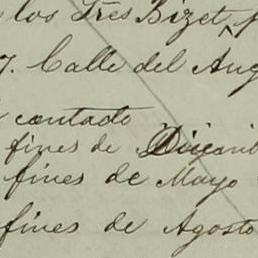 los Tres Bizet,
7. Calle del Ang
contado
fines de Diciemb
fines de Mayo
fines de Agosto